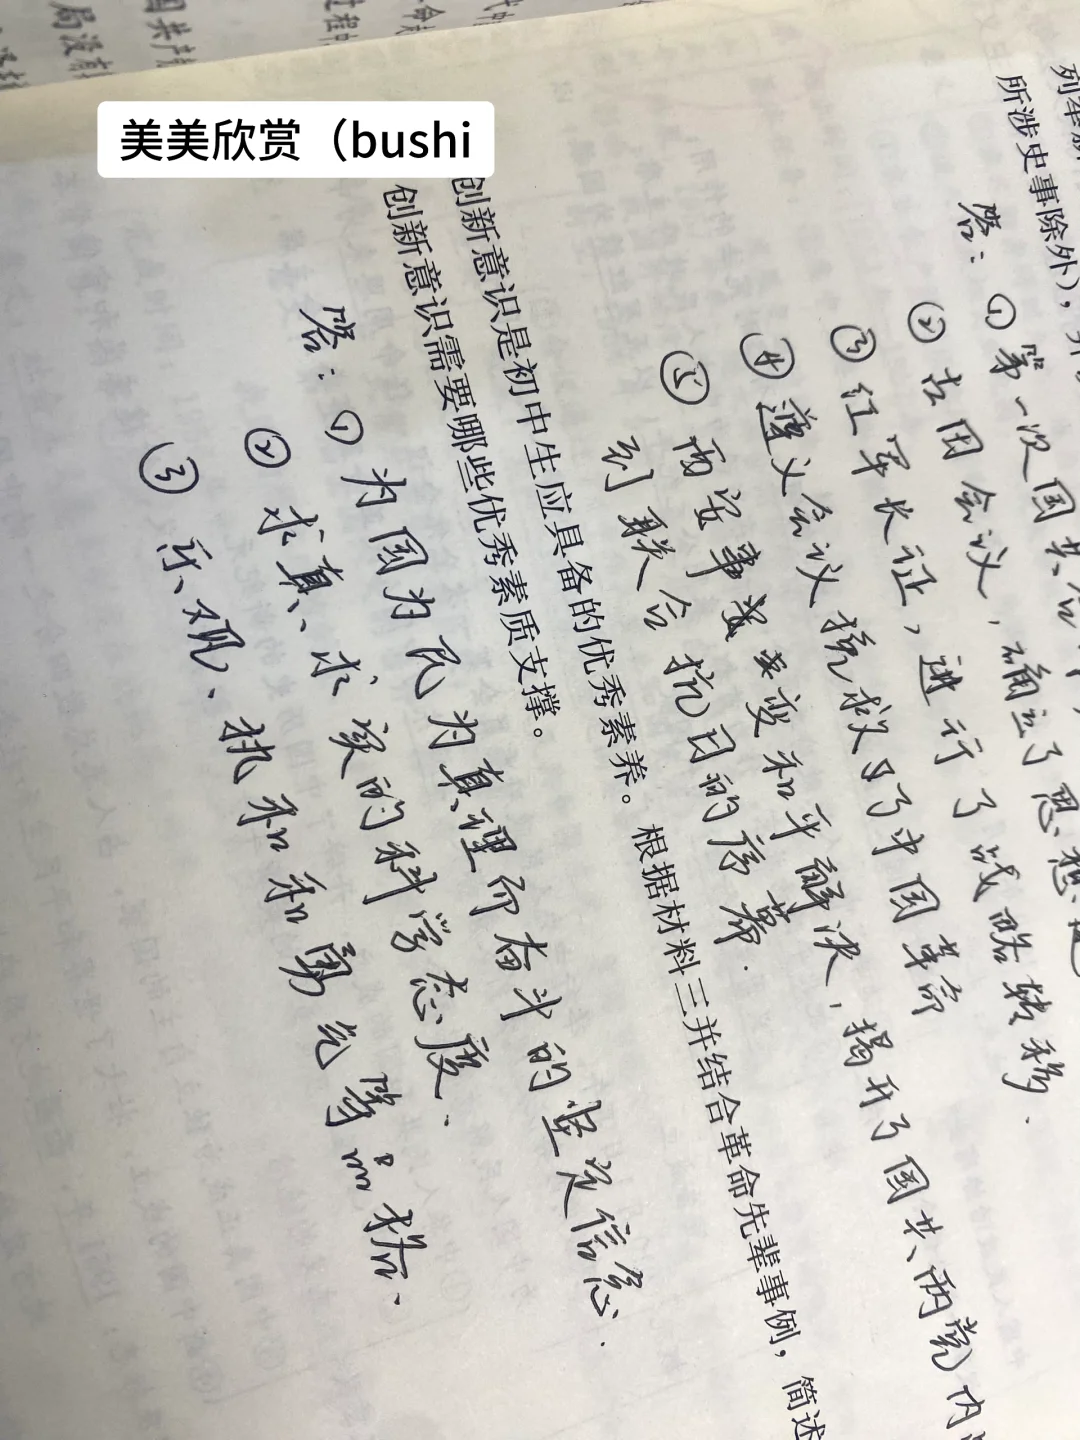 美美欣赏（bushi
所涉史事除外），
答：①第一次国共合
②古田会议，确立了思想建
③红军长征，进行了战略转移.
④遵义会议挽救了中国革命
⑤西安事变和平解决，揭开了国共两党内
到联合抗日的序幕.
创新意识是初中生应具备的优秀素养。根据材料三并结合革命先辈事例，简述
创新意识需要哪些优秀素质支撑。
答：①为国为民为真理而奋斗的坚定信念.
②求真、求实的科学态度.
③乐观、执和和勇气等品格.